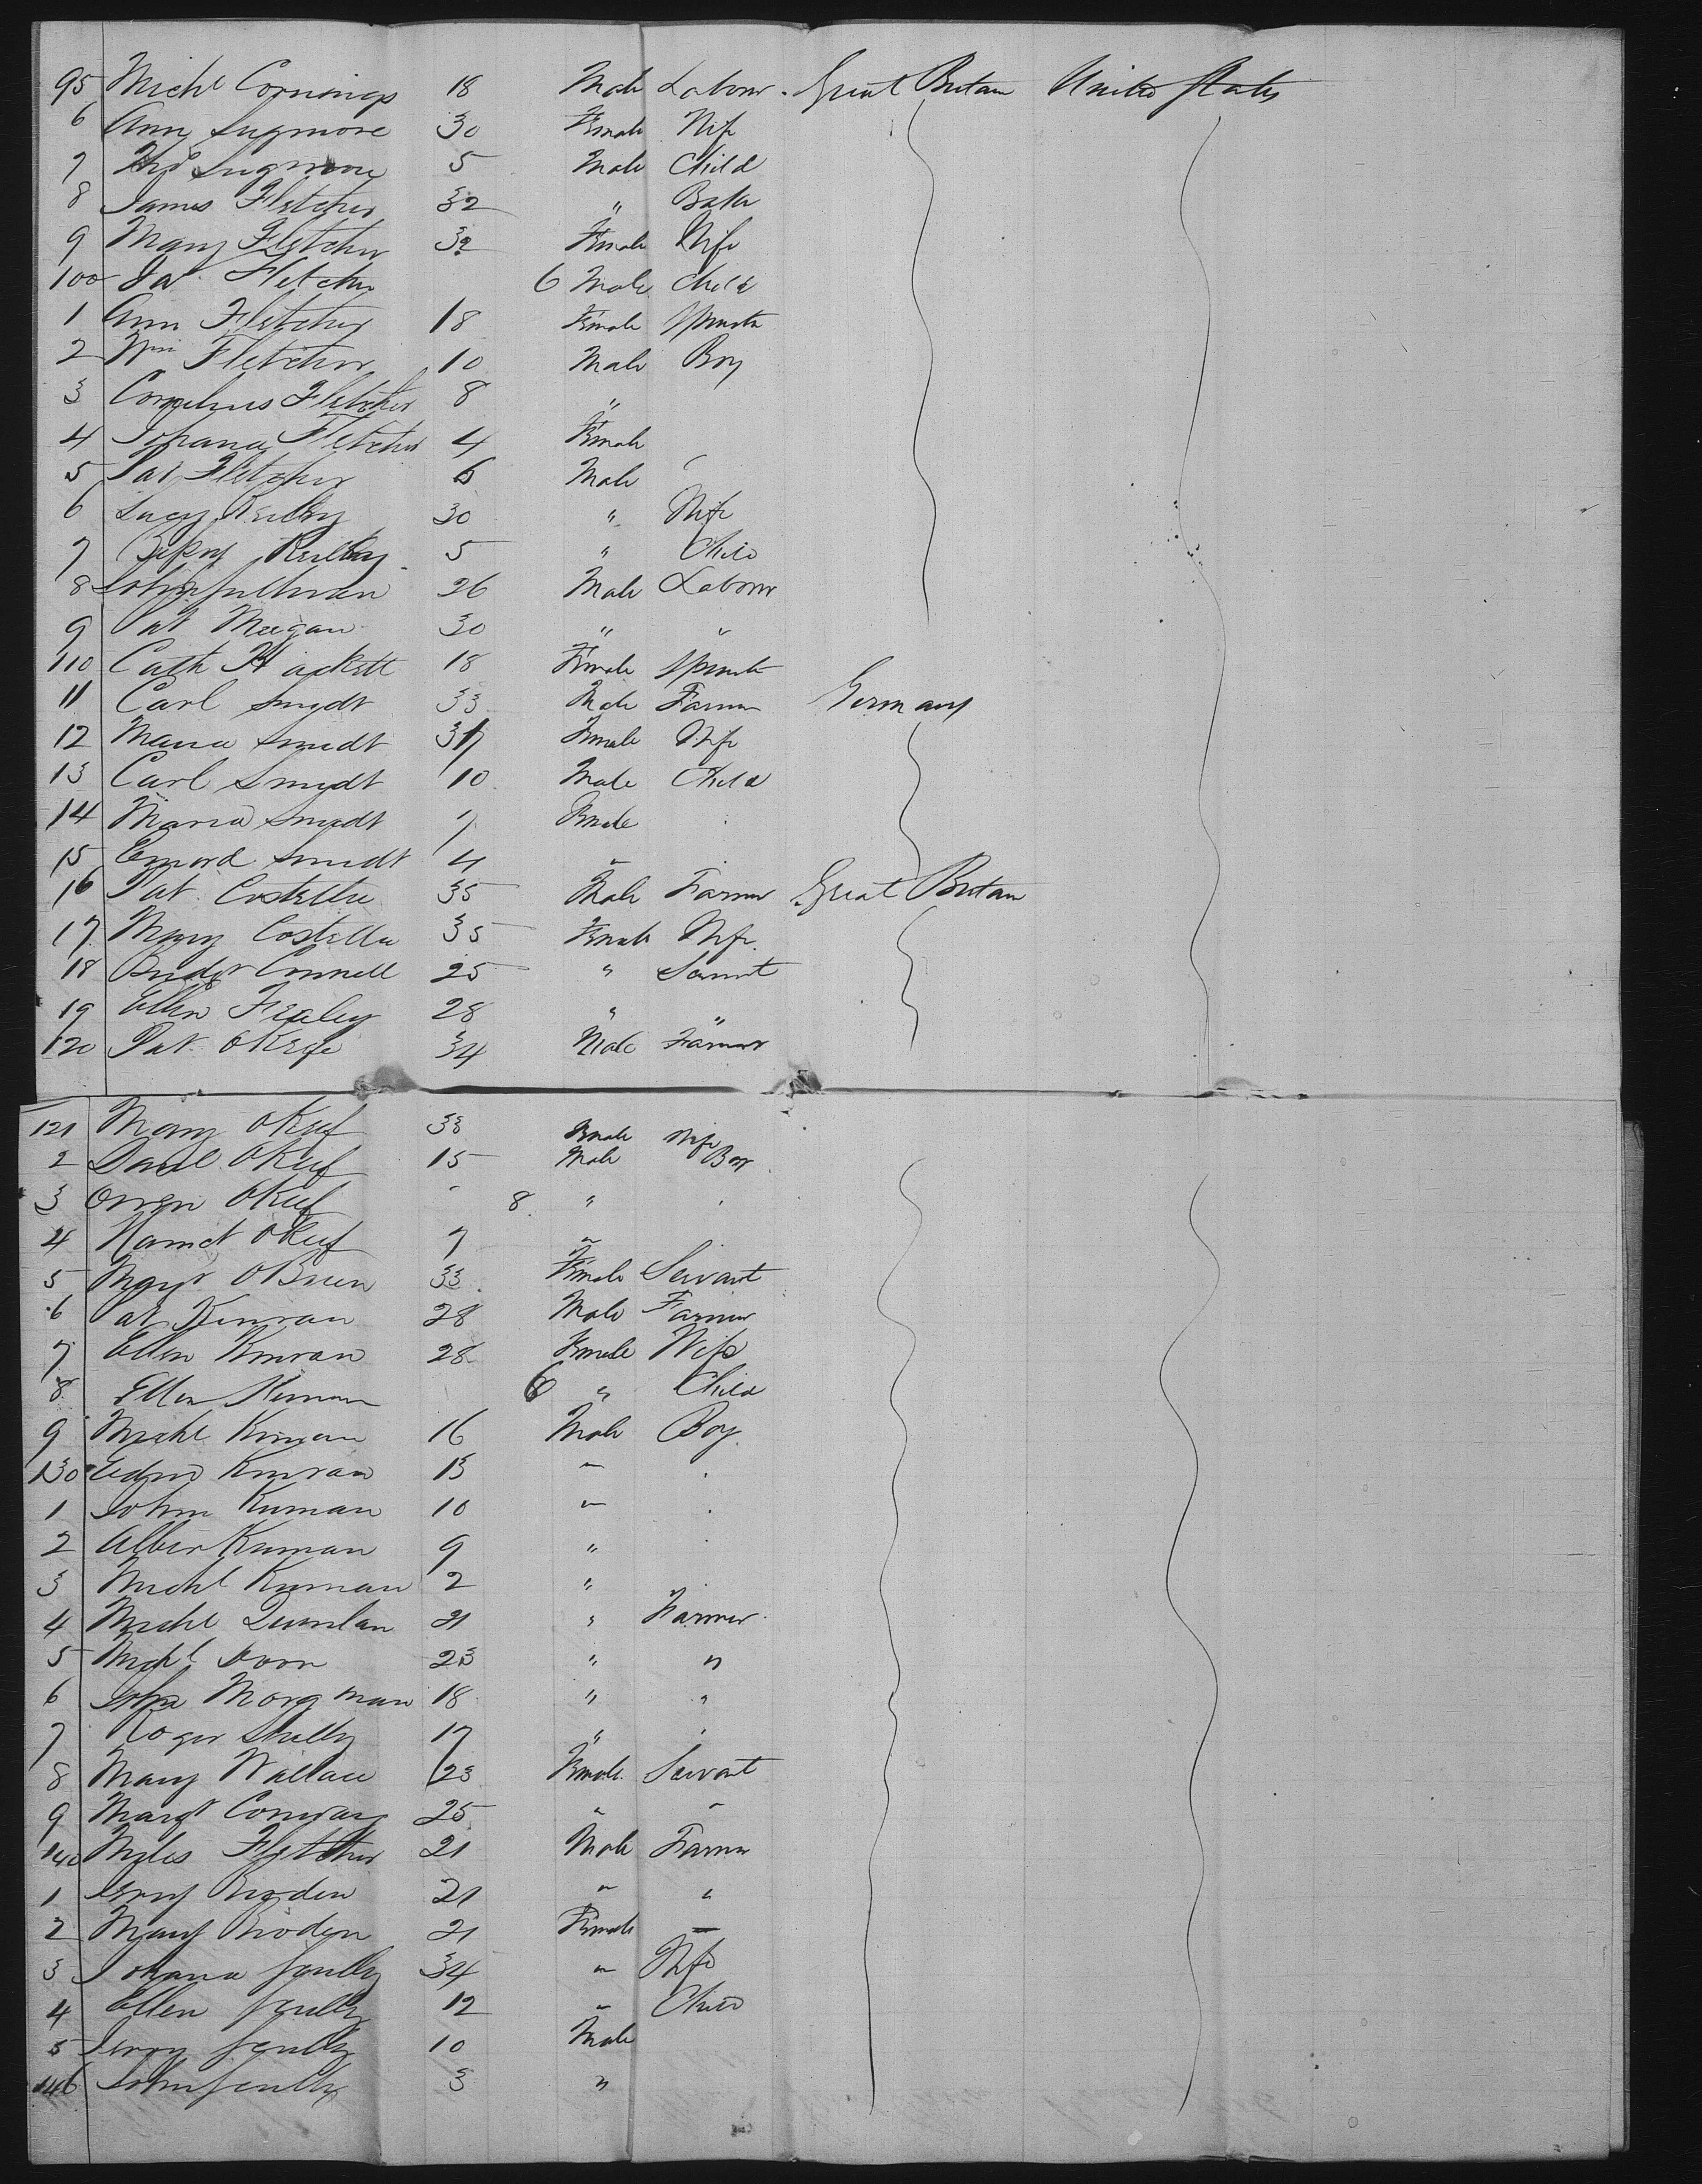 95 Michl Cornings 18 Male Labour Great Britain United States
6 Ann Sugmore 30 Female Wife
7 Sugmore 5 Male Child
8 James Fletcher 32 " Baker
9 Mary Fletcher 32 Female Wife
100 Fletcher 6 Male Child
1 Ann Fletcher 18 Female Spinster
2 Wm Fletcher 10 Male Boy
3 Cornelius Fletcher 8 "
4 Johana Fletcher 4 Female
5 Pat Fletcher 6 Male
6 Lucy Reilly 30 " Wife
7 Reilly 5 " Child
8 John Sullivan 26 Male Labour
9 Pat Meegan 30 " "
110 Cath Hackett 18 Female Spinster
11 Carl Smydt 33 Male Farmer Germany
12 Maria Smidt 37 Female Wife
13 Carl Smydt 10 Male Child
14 Maria Smidt 7 Female
15 Smidt 4 "
16 Pat Costello 35 Male Farmer Great Britain
17 Mary Costello 35 Female Wife
18 Bridgt Connell 25 " Servant
19 Ellen Fealey 28 " "
120 Pat OKeefe 34 Male Farmer
121 Mary OKeef 33 Female Wife
2 Danl OKeef 15 Male Boy
3 Owen OKeef 8 "
4 OKeef 7 "
5 Margt OBrien 33 Female Servant
6 Pat Kinran 28 Male Farmer
7 Ellen Kinran 28 Female Wife
8 Ellen Kirnan 6 " Child
9 Michl Kirnan 16 Male Boy
130 Edmd Kinran 13 "
1 John Kirnan 10 "
2 Kirnan 9 "
3 Michl Kirnan 2 "
4 Michl Quinlan 21 " Farmer
5 Michl 23 " "
6 18 " "
7 Roger Skelly 17 "
8 Mary Wallace 23 Female Servant
9 Margt Conway 25 " "
140 Miles Fletcher 21 Male Farmer
1 21 " "
2 Mary Broden 21 Female
3 Johana Scully 34 " Wife
4 Ellen Scully 12 " Child
5 Jerry Scully 10 Male
146 John Scully 3 "